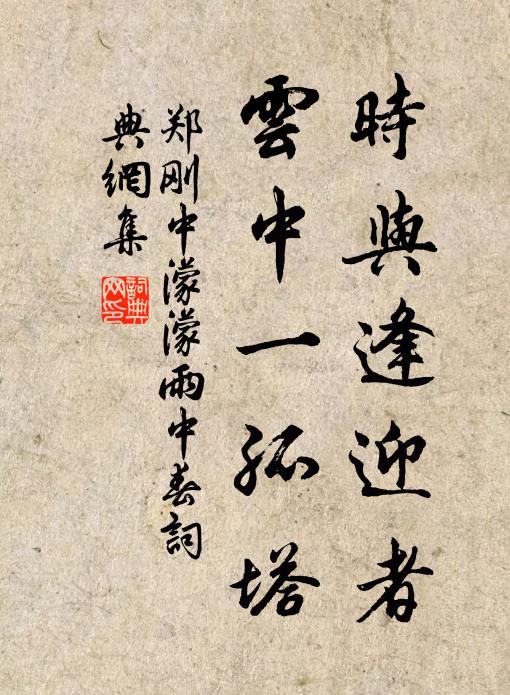 時與逢迎者
雲中一孤塔
郑刚中濛濛雨中春詞
典網集
詞典
网印